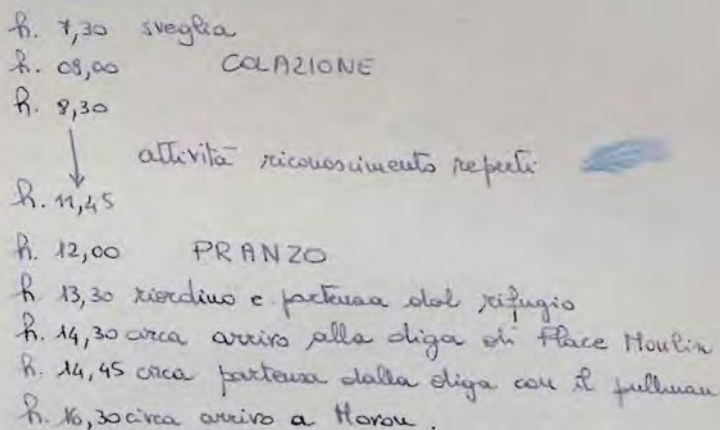 h. 7,30 sveglia
h. 08,00 COLAZIONE
h. 8,30
attività riconoscimento reperti
h. 11,45
h. 12,00 PRANZO
h. 13,30 riordino e partenza dal rifugio
h. 14,30 circa arrivo alla diga di Place Moulin
h. 14,45 circa partenza dalla diga con il pullman
h. 16,30 circa arrivo a